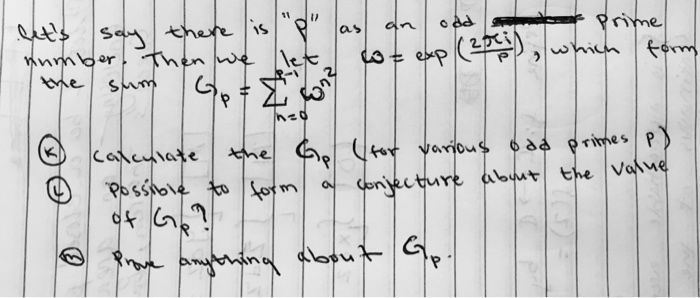 Let's say there is "p" as an odd prime
number. Then we let ω = exp(2πi/p), which form
the sum G_p = ∑_{n=0}^{p-1} ω^{n^2}
(K) calculate the G_p (for various odd primes p)
(L) possible to form a conjecture about the value
of G_p?
(m) Prove anything about G_p.